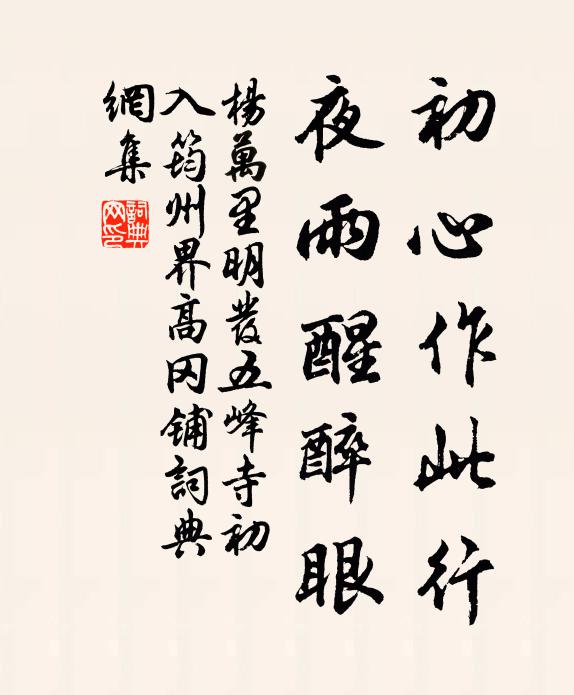 初心作此行
夜雨醒醉眼
楊萬里明發五峰寺初
入筠州界高冈铺詞典
網集
詞典
网印